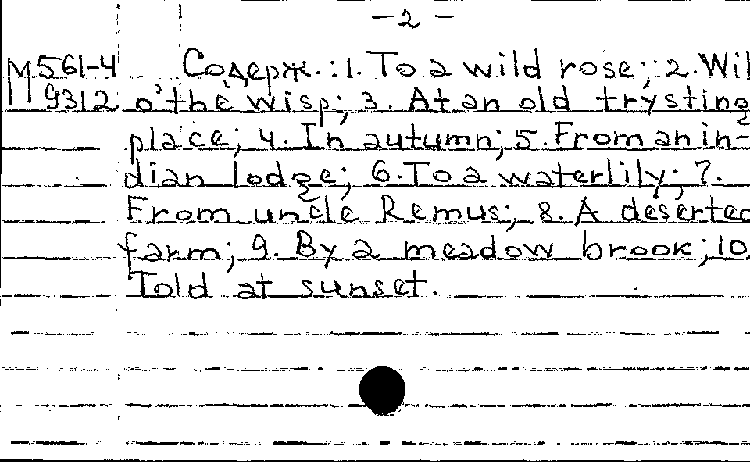 - 2 -
М 561-4 Содерж.: 1. To a wild rose; 2. Wil
9312 o'the wisp; 3. At an old trysting
place; 4. In autumn; 5. From an in-
dian lodge; 6. To a waterlily; 7.
From uncle Remus; 8. A deserted
farm; 9. By a meadow brook; 10.
Told at sunset.